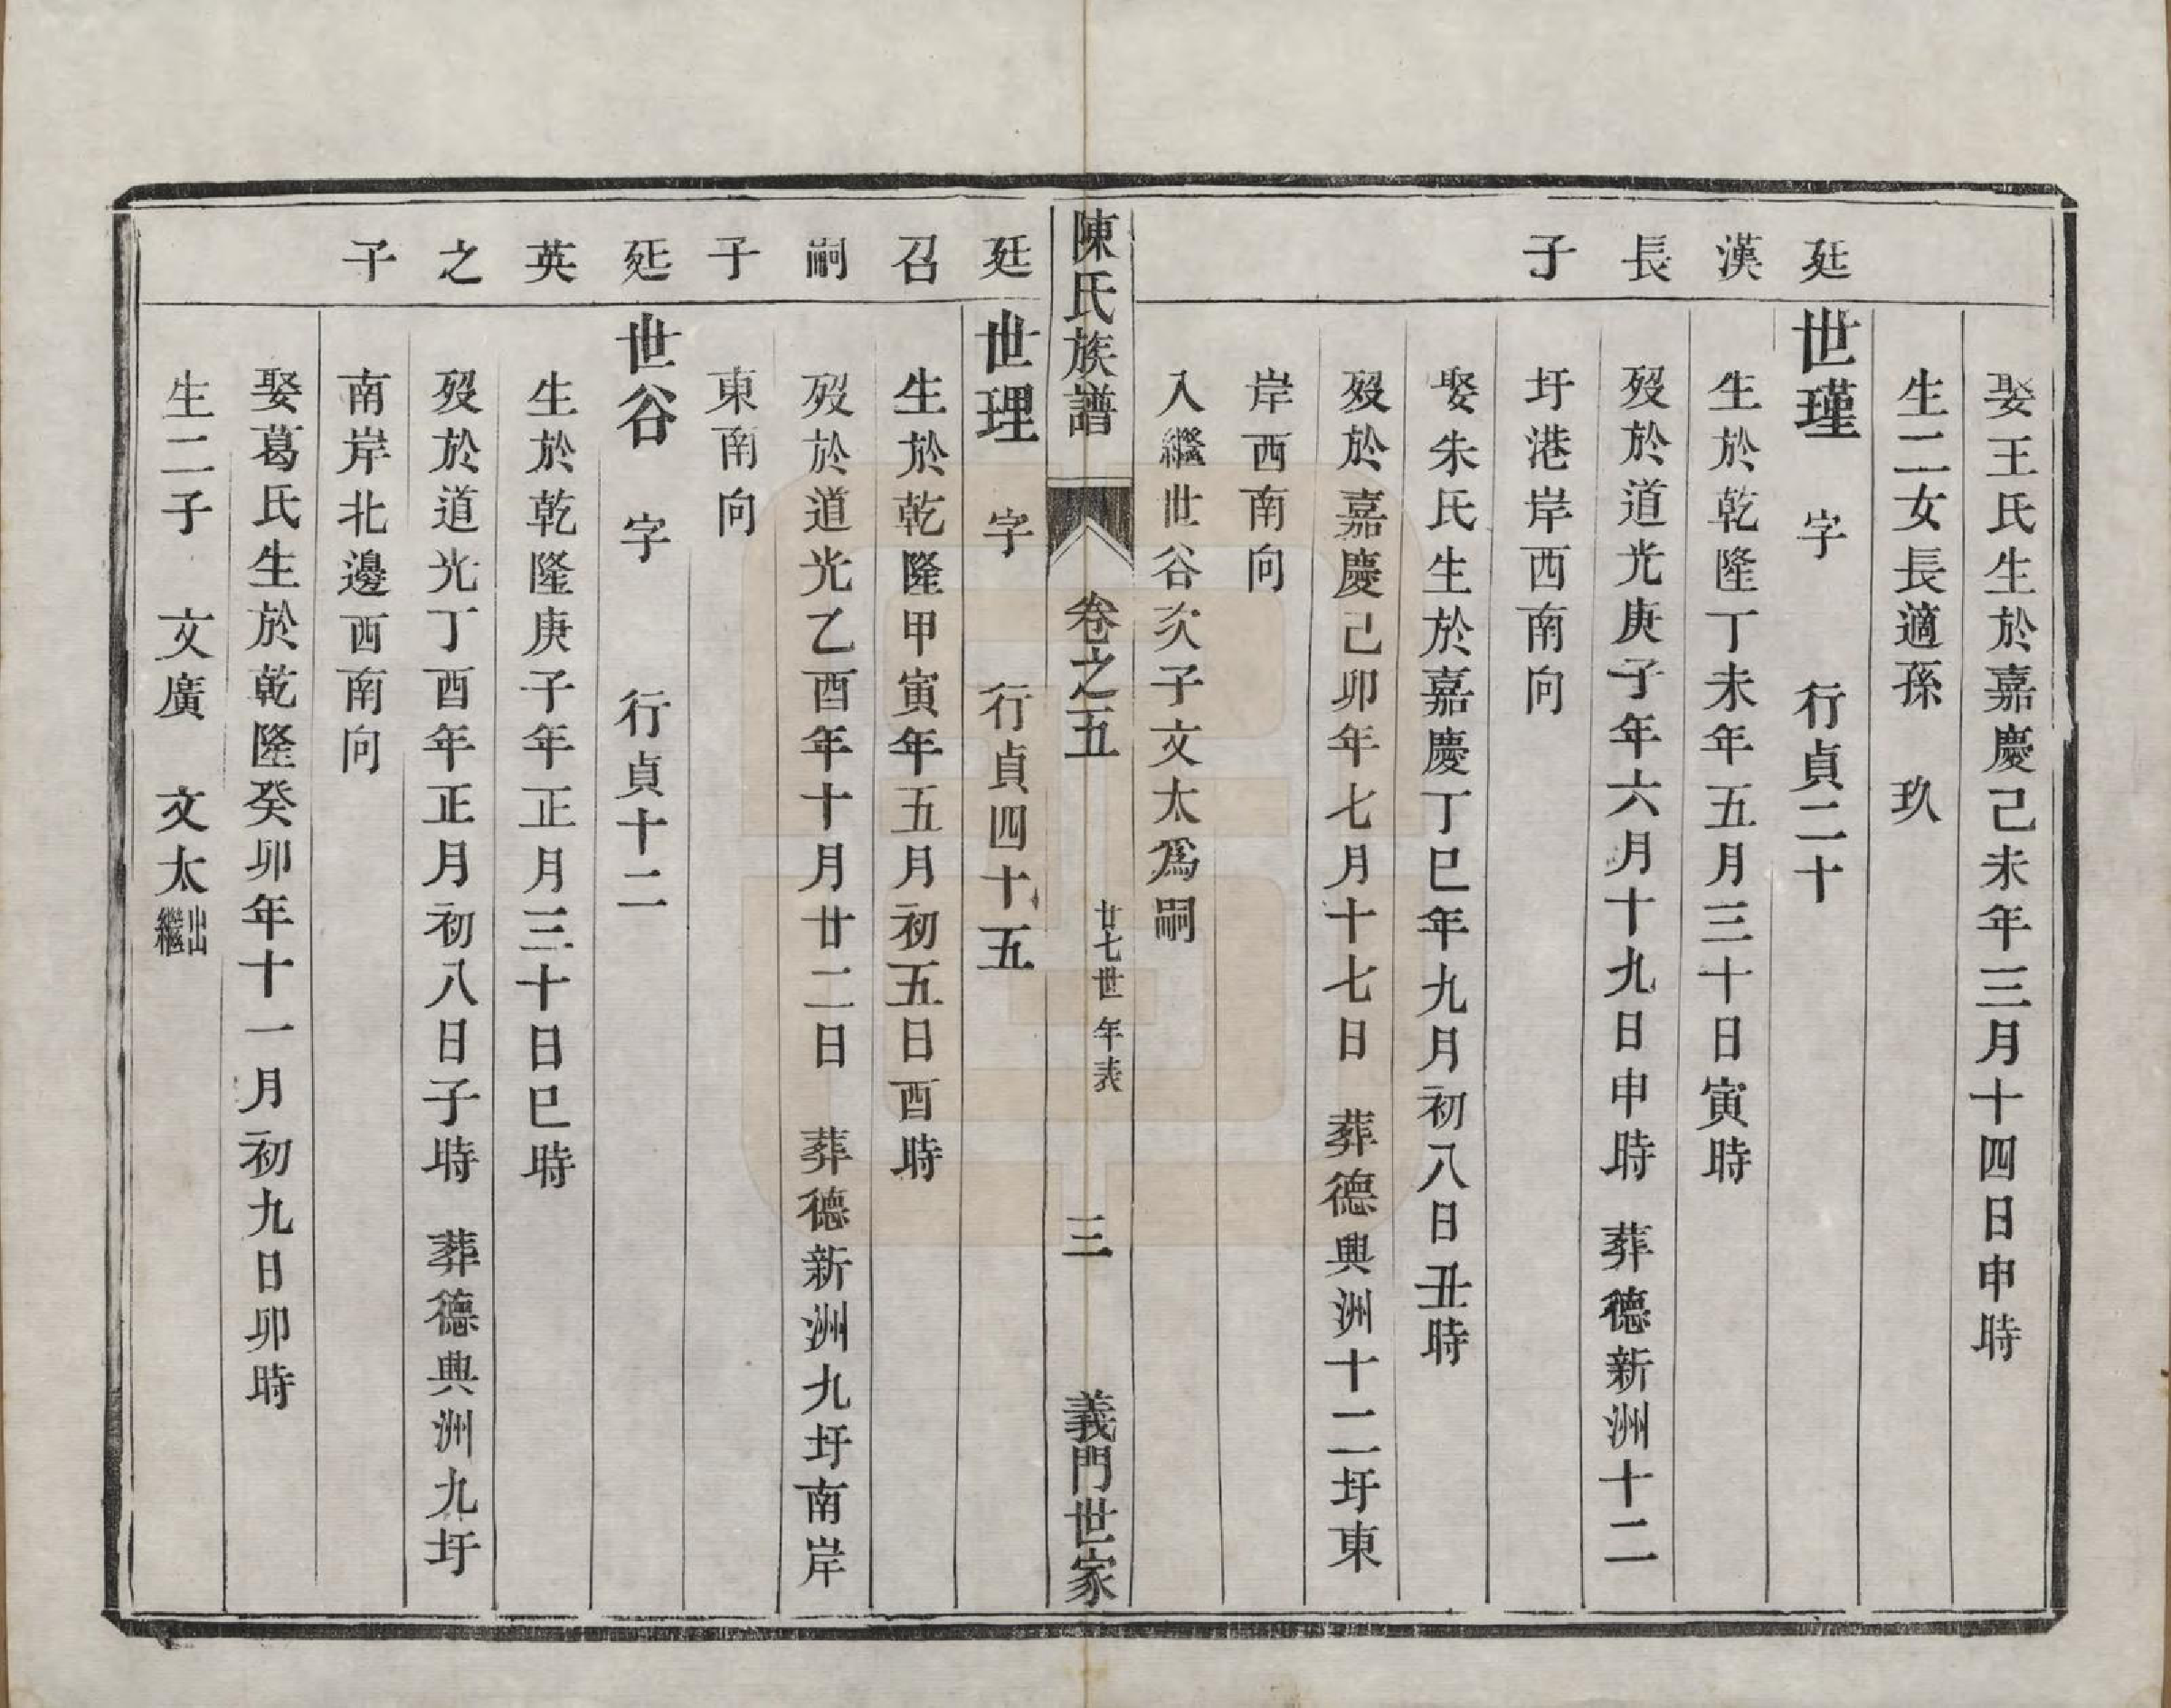 娶王氏生於嘉慶己未年三月十四日申時
生二女長適孫　玖
廷漢長子
世瑾　字　行貞二十
生於乾隆丁未年五月三十日寅時
歿於道光庚子年六月十九日申時　葬德新洲十二
圩港岸西南向
娶朱氏生於嘉慶丁巳年九月初八日丑時
歿於嘉慶己卯年七月十七日　葬德興洲十二圩東
岸西南向
入繼世谷次子文太為嗣
陳氏族譜　卷之五　廿七世年表　三　義門世家
廷召嗣子
世理　字　行貞四十五
生於乾隆甲寅年五月初五日酉時
歿於道光乙酉年十月廿二日　葬德新洲九圩南岸
東南向
廷英之子
世谷　字　行貞十二
生於乾隆庚子年正月三十日巳時
歿於道光丁酉年正月初八日子時　葬德興洲九圩
南岸北邊西南向
娶葛氏生於乾隆癸卯年十一月初九日卯時
生二子　文廣　文太出繼